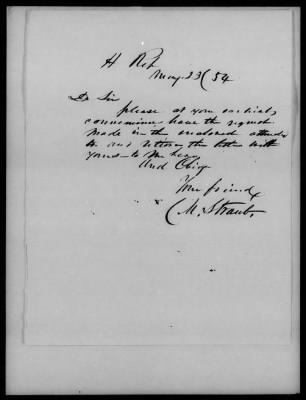 H Rep
May 23 / 54
Dr Sir
please at your earliest
convenience have the request
made in the enclosed attended
to and return the letter with
yours to me here
And Oblige
Your friend
M. Straub.